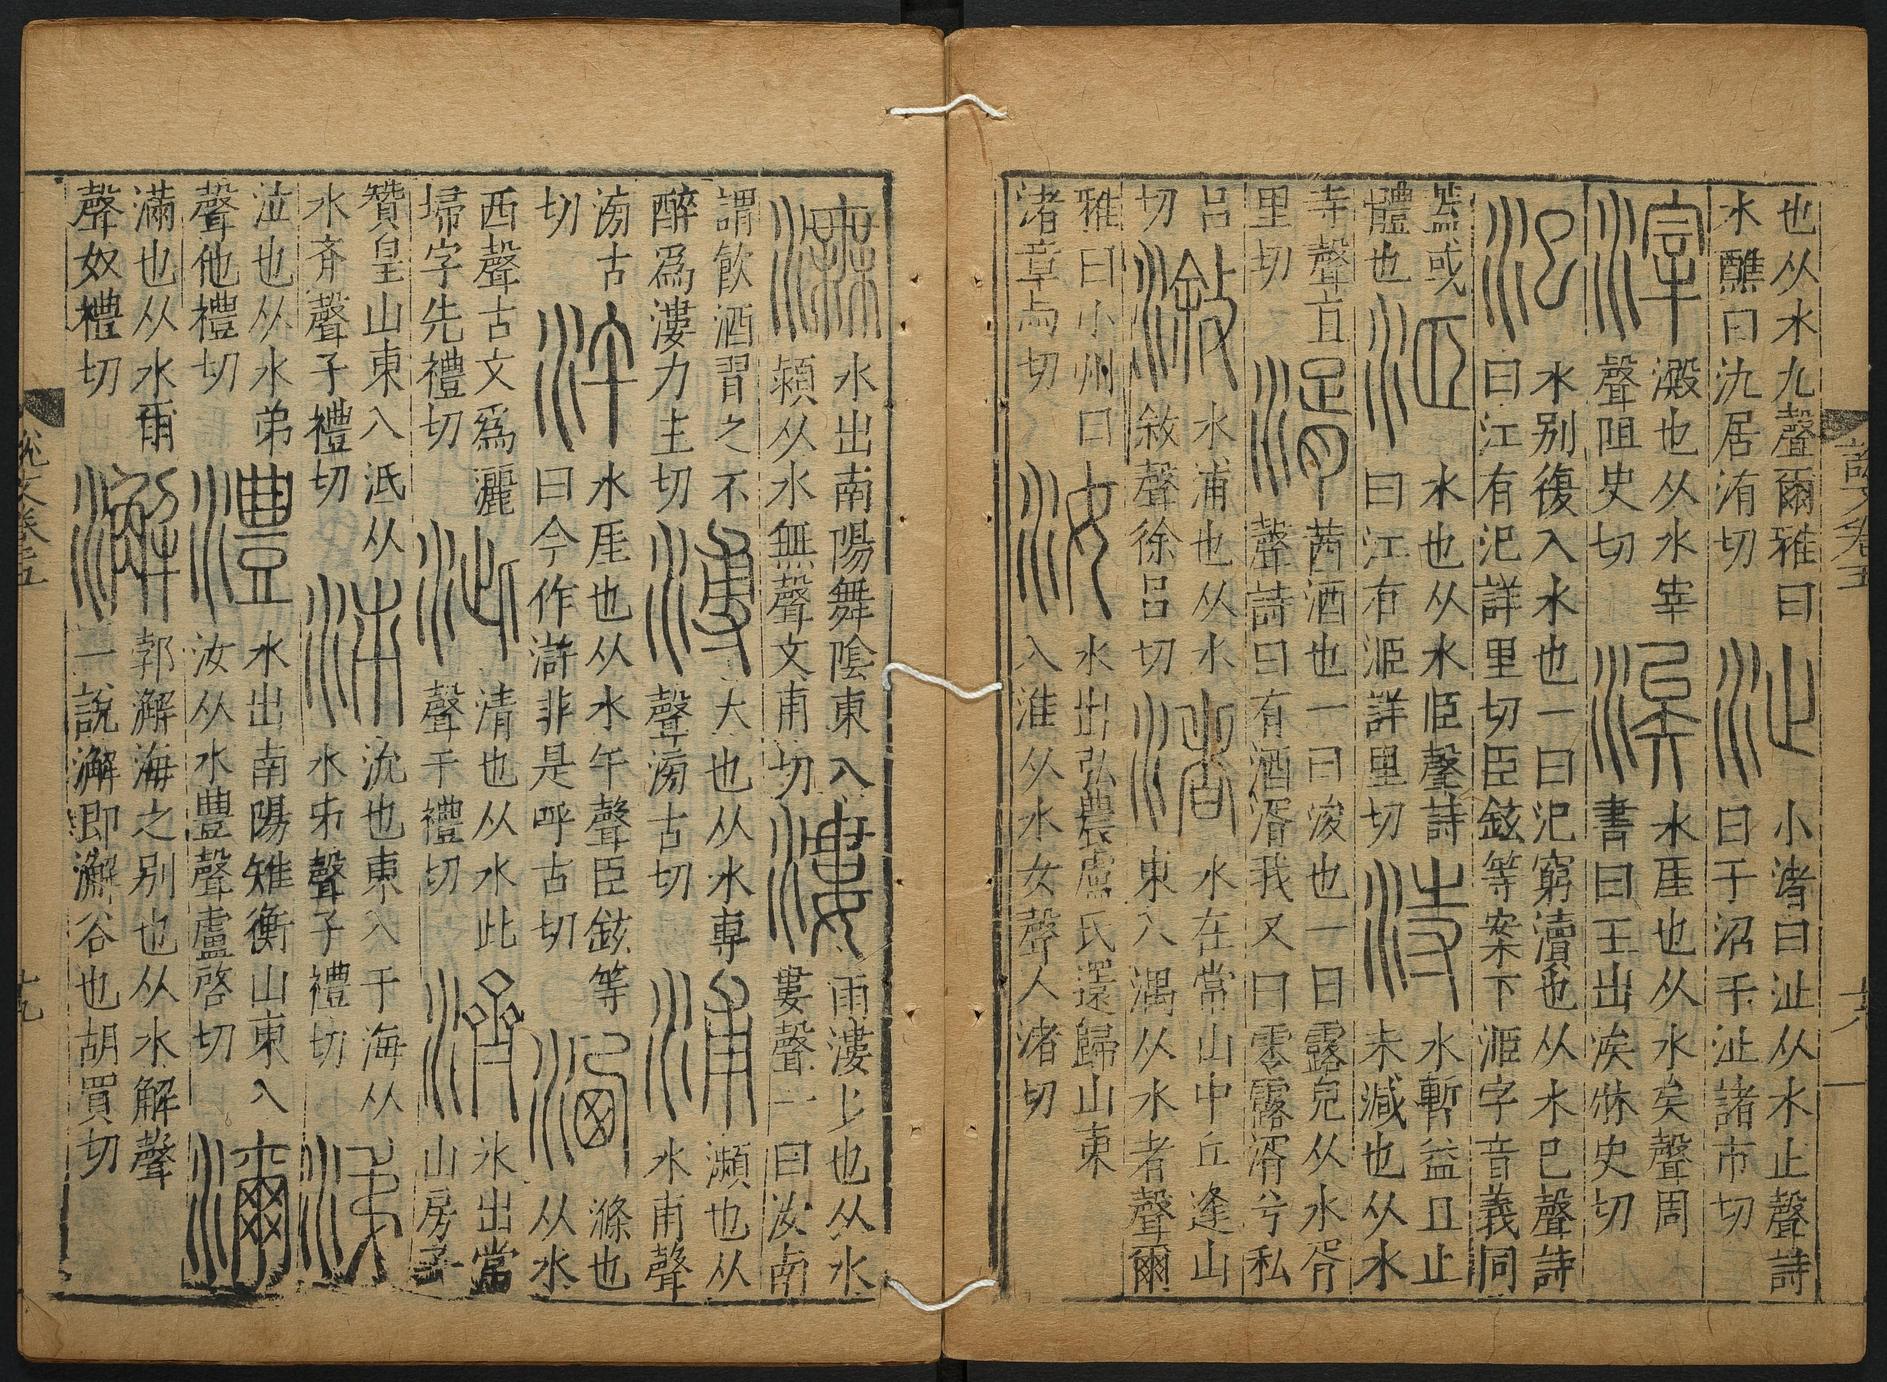 也从水九聲爾雅曰
水醮曰氿居洧切
沚
小渚曰沚从水止聲詩
曰于沼于沚諸市切
滓
澱也从水宰
聲阻史切
涘
水厓也从水矣聲周
書曰王出涘牀史切
汜
水别復入水也一曰汜窮瀆也从水巳聲詩
曰江有汜詳里切臣鉉等案下洍字音義同
蓋或
體也
洍
水也从水𦣞聲詩
曰江有洍詳里切
洔
水暫益且止
未減也从水
寺聲直
里切
湑
茜酒也一曰浚也一曰露皃从水胥
聲詩曰有酒湑我又曰零露湑兮私
呂
切
漵
水浦也从水
敘聲徐呂切
渚
水在常山中丘逢山
東入湡从水者聲爾
雅曰小州曰
渚章与切
汝
水出弘農盧氏還歸山東
入淮从水女聲人渚切
說文卷五
十八
潕
水出南陽舞陰東入
潁从水無聲文甫切
漊
雨漊〻也从水
婁聲一曰汝南
謂飲酒習之不
醉爲漊力主切
溥
大也从水尃
聲滂古切
浦
瀕也从
水甫聲
滂古
切
汻
水厓也从水午聲臣鉉等
曰今作滸非是呼古切
洒
滌也
从水
西聲古文爲灑
埽字先禮切
泚
清也从水此
聲千禮切
濟
水出常
山房子
贊皇山東入泜从
水齊聲子禮切
泲
沇也東入于海从
水𠂔聲子禮切
涕
泣也从水弟
聲他禮切
澧
水出南陽雉衡山東入
汝从水豊聲盧啓切
濔
滿也从水爾
聲奴禮切
澥
郭澥海之别也从水解聲
一說澥即澥谷也胡買切
說文卷五
十九